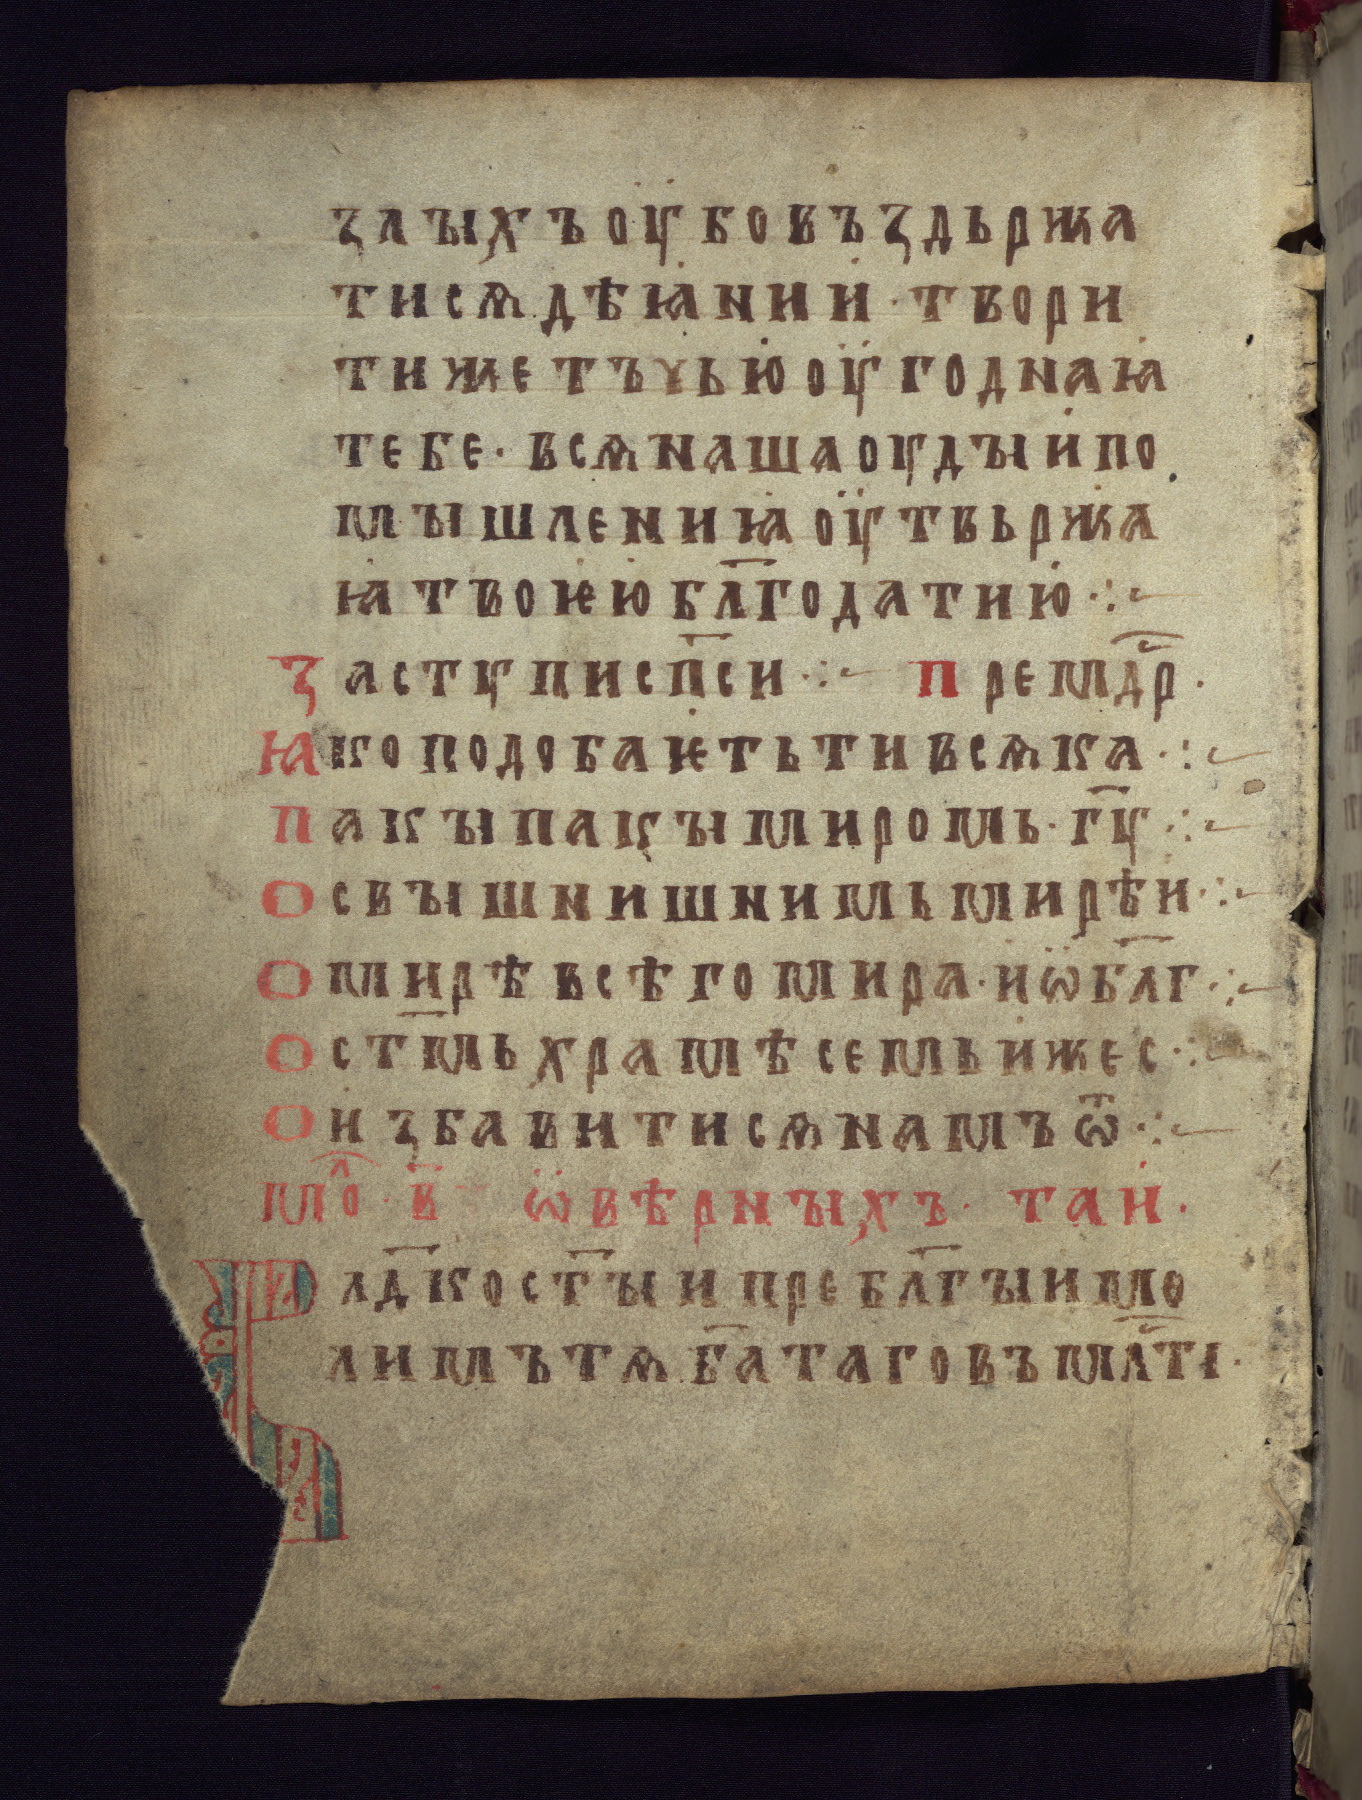 злꙑхъ оу бо въздьржа
тисѧ дѣꙗнии · твори
ти же тъчью оугоднаꙗ
тебе · всѧ наша оудꙑ и по
мꙑшлениꙗ оутвьржа
ꙗ твоѥю бл҃годатию ⁘
Застꙋпи сп҃си ⁘ Премдⷭ҇р ·
Ꙗко подобаѥть ти всѧка ⁘
Пакꙑ пакꙑ миромь · г҃ꙋ ⁘
О свꙑшнишнимь мирѣ и ⁘
О мирѣ всѣго мира · и ѡ бл҃г ⁘
О ст҃мь храмѣ семь иже с ⁘
О избавитисѧ намъ ѿ ⁘
Моⷧ҇ · в҃ ѡ вѣрнꙑхъ · таи ·
Влд҃ко ст҃ꙑи пребл҃гꙑи мо
лимъ тѧ б҃атаго въ млⷭ҇ти ·